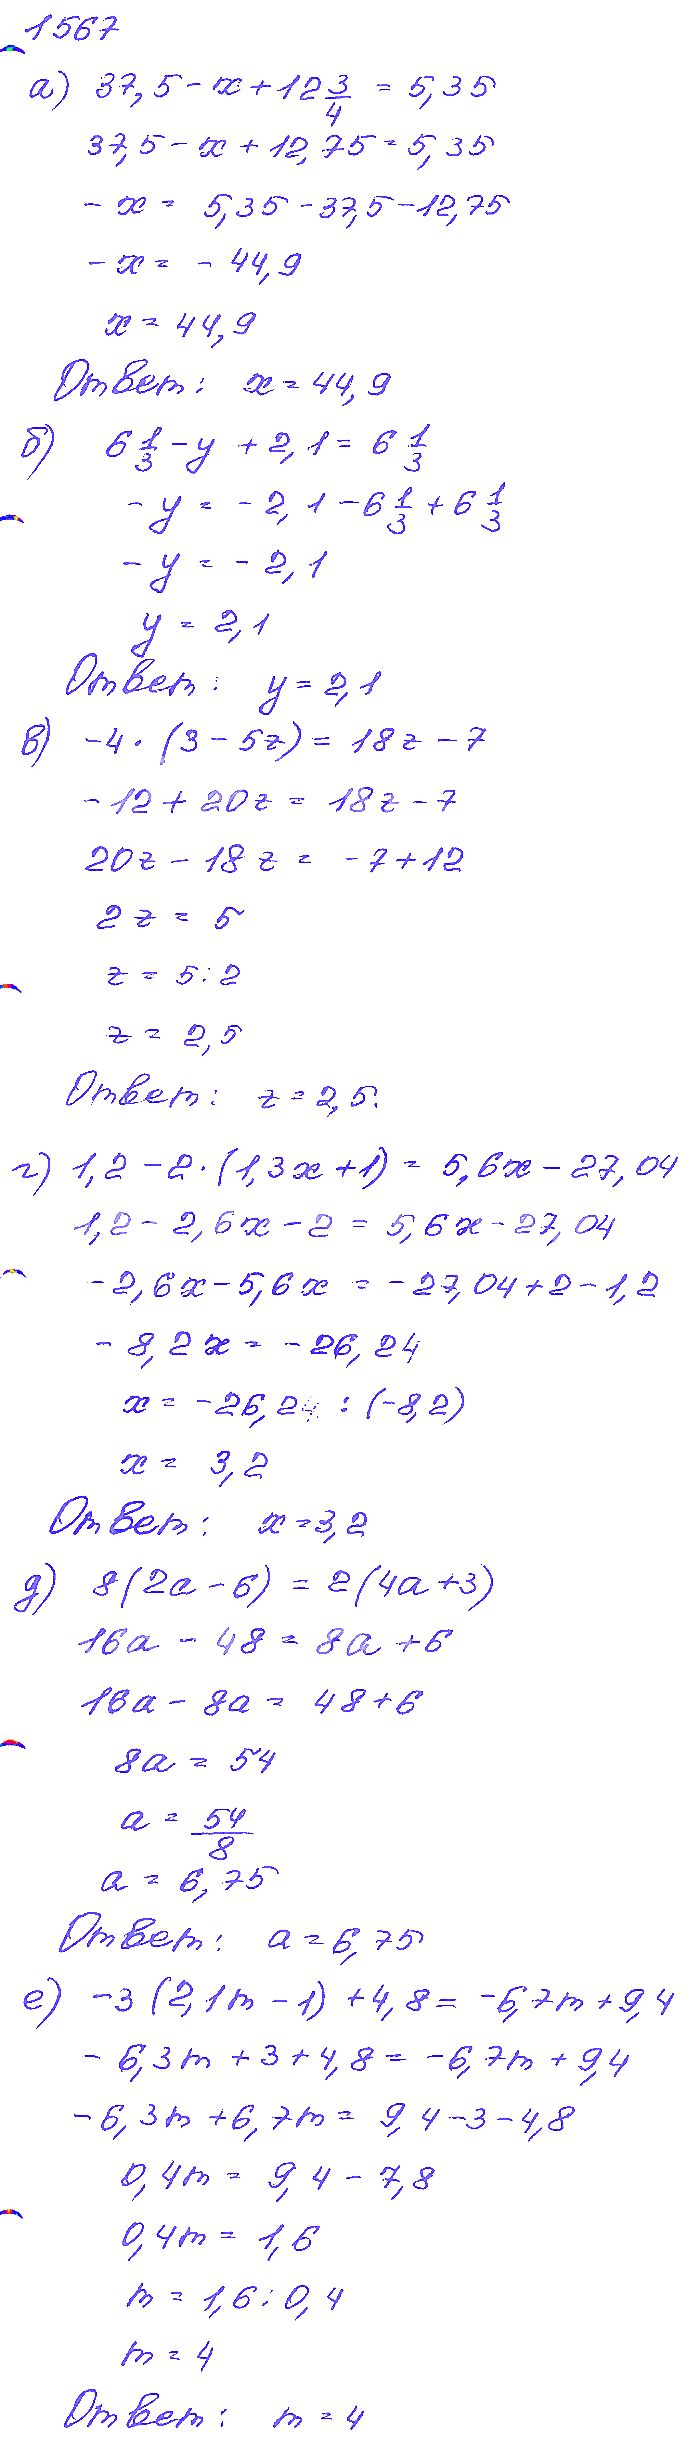 1567
а) 37,5 - x + 12 3/4 = 5,35
37,5 - x + 12,75 = 5,35
- x = 5,35 - 37,5 - 12,75
- x = - 44,9
x = 44,9
Ответ: x = 44,9
б) 6 1/3 - y + 2,1 = 6 1/3
- y = - 2,1 - 6 1/3 + 6 1/3
- y = - 2,1
y = 2,1
Ответ: y = 2,1
в) -4 · (3 - 5z) = 18z - 7
- 12 + 20z = 18z - 7
20z - 18z = -7 + 12
2z = 5
z = 5 : 2
z = 2,5
Ответ: z = 2,5.
г) 1,2 - 2 · (1,3x + 1) = 5,6x - 27,04
1,2 - 2,6x - 2 = 5,6x - 27,04
- 2,6x - 5,6x = - 27,04 + 2 - 1,2
- 8,2x = - 26,24
x = - 26,24 : (-8,2)
x = 3,2
Ответ: x = 3,2
д) 8(2a - 6) = 2(4a + 3)
16a - 48 = 8a + 6
16a - 8a = 48 + 6
8a = 54
a = 54/8
a = 6,75
Ответ: a = 6,75
е) -3(2,1m - 1) + 4,8 = -6,7m + 9,4
- 6,3m + 3 + 4,8 = -6,7m + 9,4
- 6,3m + 6,7m = 9,4 - 3 - 4,8
0,4m = 9,4 - 7,8
0,4m = 1,6
m = 1,6 : 0,4
m = 4
Ответ: m = 4